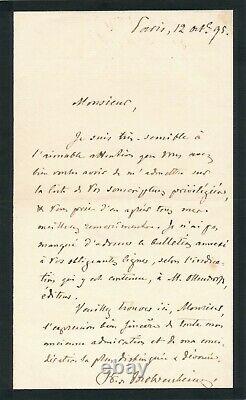 Paris, 12 oct. 95.
Monsieur,
Je suis très-sensible à
l'aimable attention que vous avez
bien voulu avoir de m'admettre sur
la liste de vos souscripteurs privilégiés,
& vous prie d'en agréer tous mes
meilleurs remerciements. Je n'ai pas
manqué d'adresser le bulletin annexé
à vos obligeantes lignes, selon l'indication
qui y est contenue, à M. Ollendorff,
éditeur.
Veuillez trouver ici, Monsieur,
l'expression bien sincère de toute mon
ancienne admiration et de ma con-
sidération la plus distinguée & dévouée.